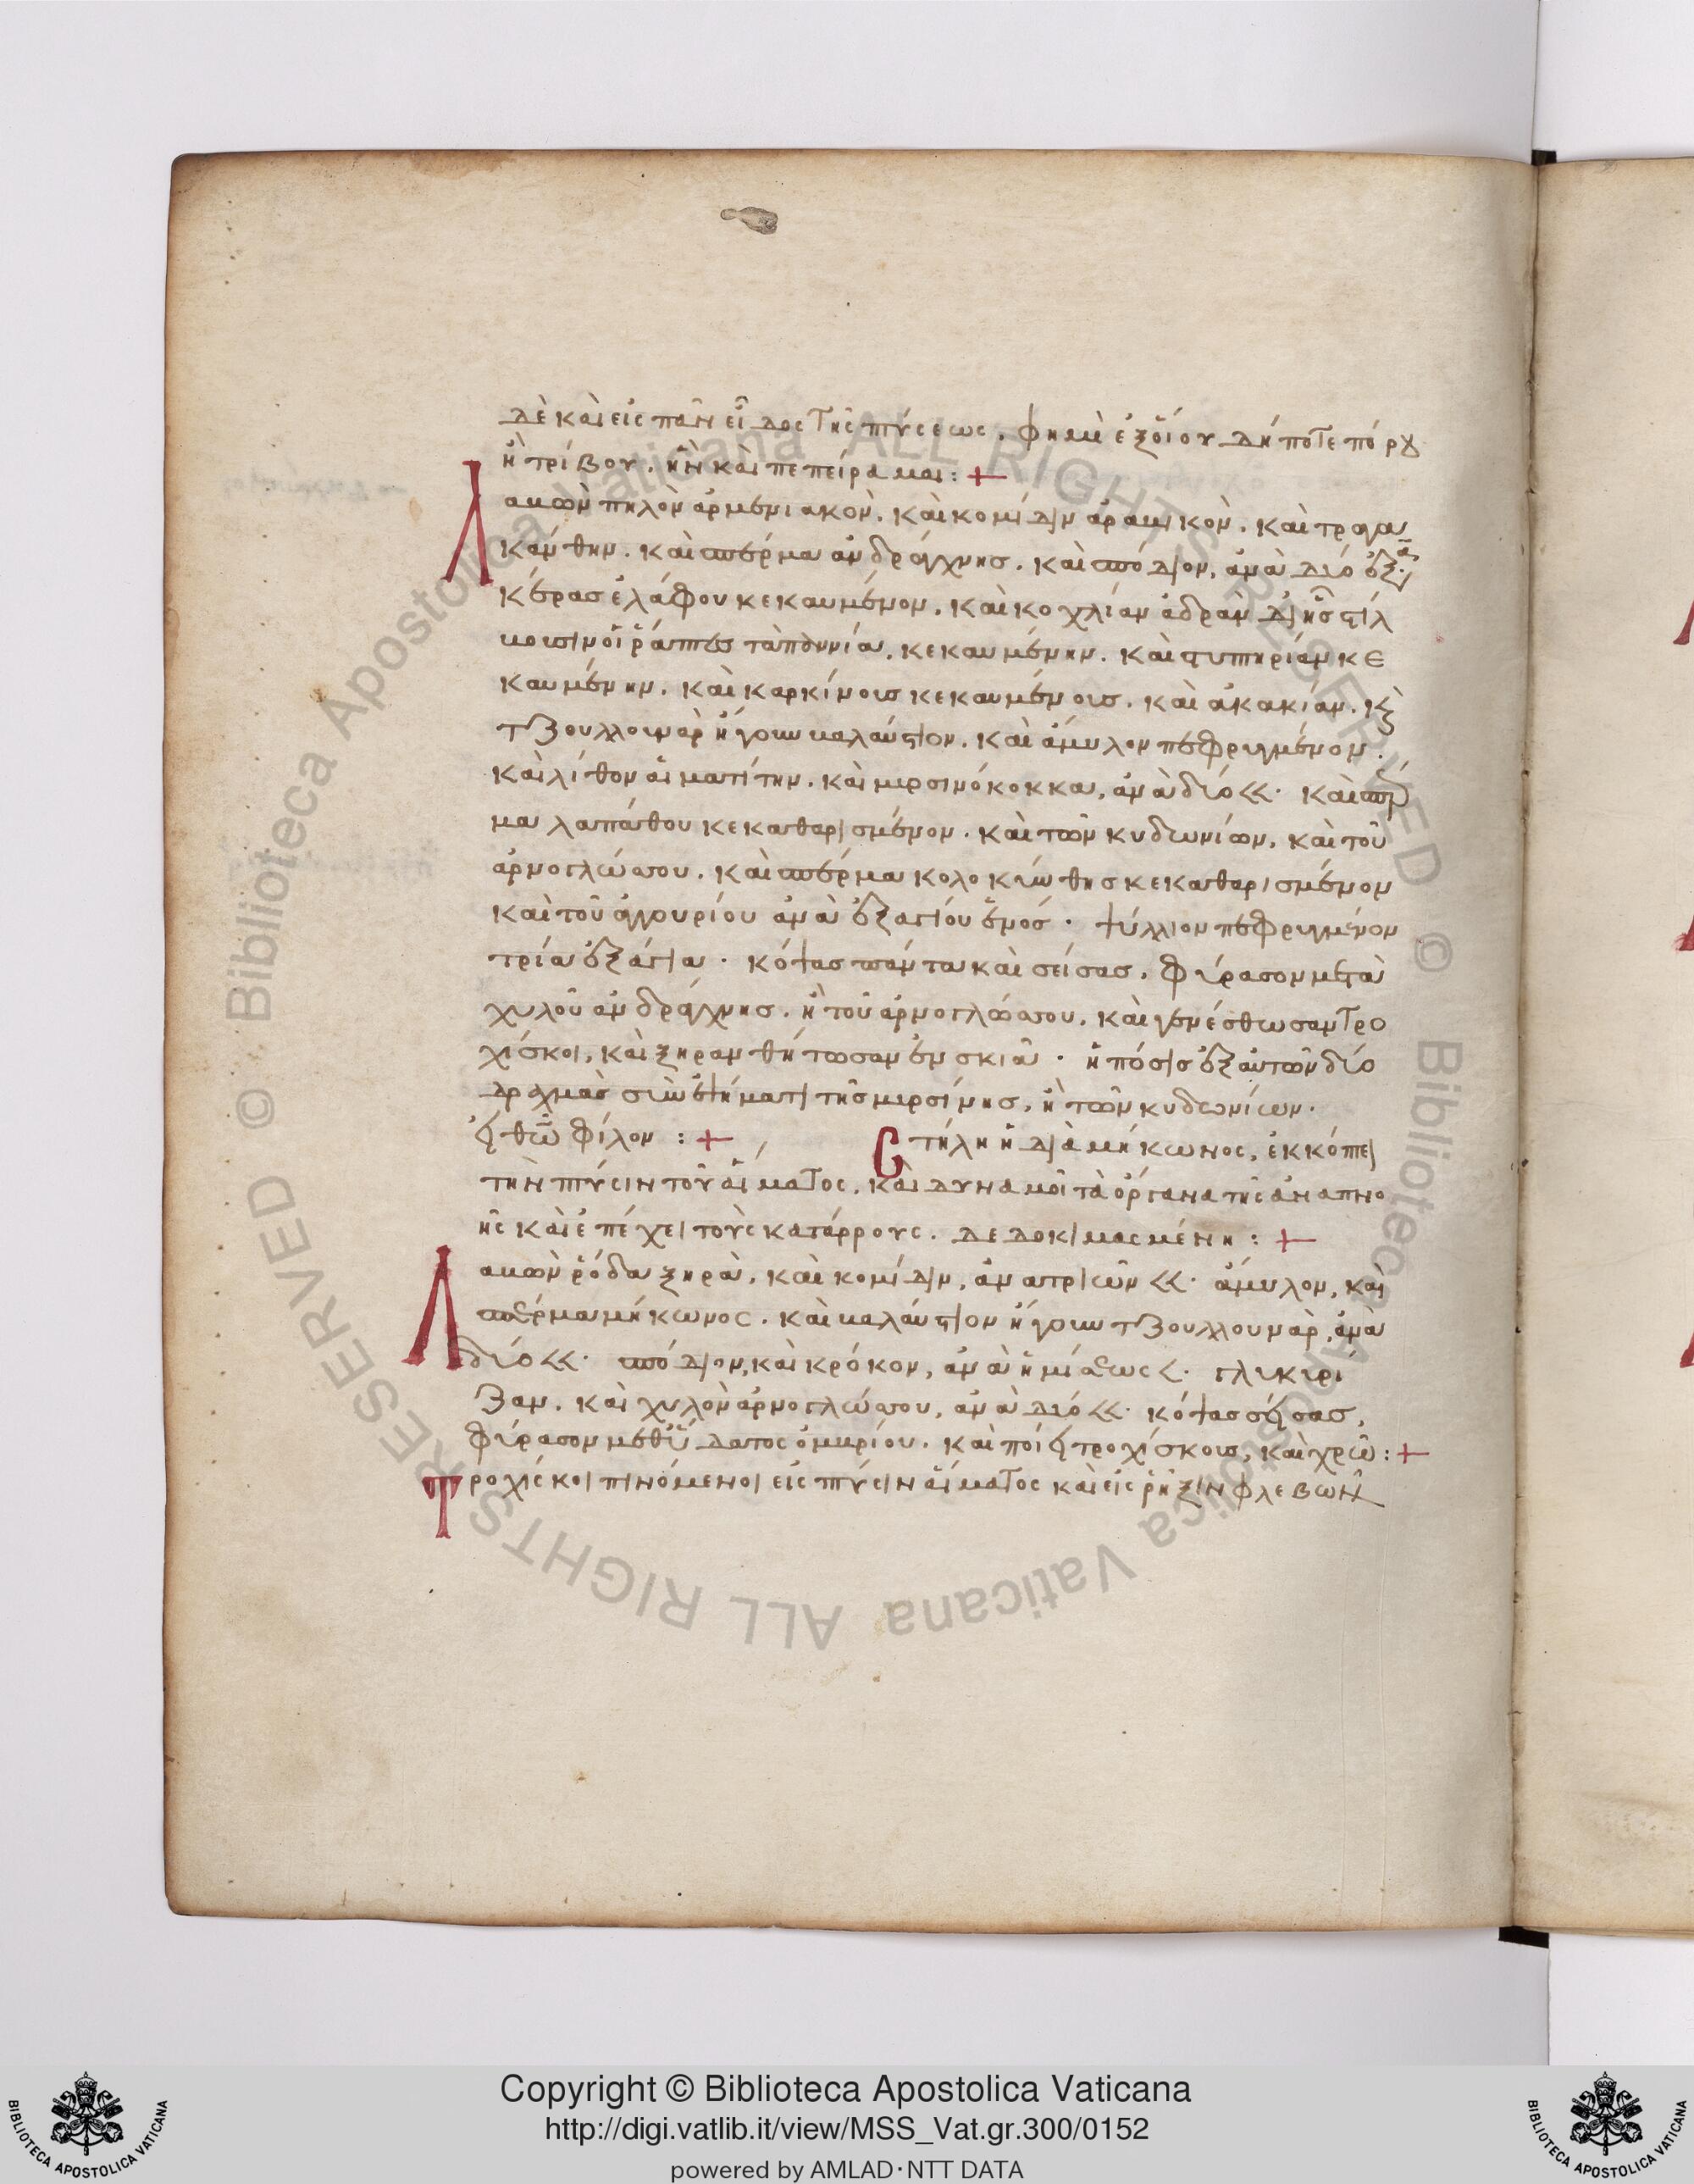 δὲ καὶ εἰς πᾶν εἶδος τῆς πτύσεως. φημὶ ἐξ οἵου δήποτε πόρου
ἢ τρίβου. ἣν καὶ πεπείραμαι: +
Λαβὼν πηλὸν ἀρμενιακὸν. καὶ κομίδιν ἀραβικὸν. καὶ τραγα
κάνθην. καὶ σπέρμα ἀνδράχνης. καὶ σπόδιον, ἀνὰ δύο ἐξάγ
κέρας ἐλάφου κεκαυμένον. καὶ κοχλίαν ἁδρὰν δι' ἧς στίλ
βουσιν οἱ ῥάπται τὰ πανία, κεκαυμένην. καὶ στυπηρίαν κε
καυμένην. καὶ καρκίνους κεκαυμένους. καὶ ἀκακίαν. κὶ
τζουλλουνὰρ ἤγουν βαλαύστιον. καὶ ἄμυλον πεφρυγμένον.
καὶ λίθον αἱματίτην. καὶ μυρσινόκοκκα, ἀνὰ δύο <<. καὶ σπέρ
μα λαπάθου κεκαθαρισμένον. καὶ τῶν κυδωνίων, καὶ τοῦ
ἀρνογλώσσου. καὶ σπέρμα κολοκύνθης κεκαθαρισμένον
καὶ τοῦ ἀγγουρίου ἀνὰ ἐξαγίου ἑνός. ψύλλιον πεφρυγμένον
τρία ἐξάγια. κόψας πάντα καὶ σείσας, φύρασον μετὰ
χυλοῦ ἀνδράχνης. ἢ τοῦ ἀρνογλώσσου. καὶ γενέσθωσαν τρο
χίσκοι, καὶ ξηρανθήτωσαν ἐν σκιᾷ. ἡ πόσις ἐξ αὐτῶν δύο
δραχμὰς σὺν ἑψήματι τῆς μυρσίνης, ἢ τῶν κυδωνίων.
εἰ θεῷ φίλον: +
Στήλη ἡ διὰ μήκωνος, ἐκκόπτει
τὴν πτύσιν τοῦ αἵματος, καὶ δυναμοῖ τὰ ὄργανα τῆς ἀναπνο
ῆς καὶ ἐπέχει τοὺς κατάρρους. δεδοκιμασμένη: +
Λαβὼν ῥόδα ξηρὰ, καὶ κομίδιν, ἀνὰ τριῶν <<. ἄμυλον, καὶ
σπέρμα μήκωνος. καὶ βαλαύστιον ἤγουν τζουλλουνὰρ, ἀνὰ
δύο <<. σπόδιον, καὶ κρόκον, ἀνὰ ἡμίσεως <. γλυκυρί
ζαν. καὶ χυλὸν ἀρνογλώσσου, ἀνὰ δύο <<. κόψας σείσας,
φύρασον μεθ' ὕδατος ὀμβρίου. καὶ ποίει τροχίσκους, καὶ χρῶ: +
Τροχίσκοι πινόμενοι εἰς πτύσιν αἵματος καὶ εἰς ῥῆξιν φλεβῶν
Copyright © Biblioteca Apostolica Vaticana
http://digi.vatlib.it/view/MSS_Vat.gr.300/0152
powered by AMLAD·NTT DATA
BIBLIOTECA APOSTOLICA VATICANA
BIBLIOTECA APOSTOLICA VATICANA
© Biblioteca Apostolica Vaticana ALL RIGHTS RESERVED © Biblioteca Apostolica Vaticana ALL RIGHTS RESERVED